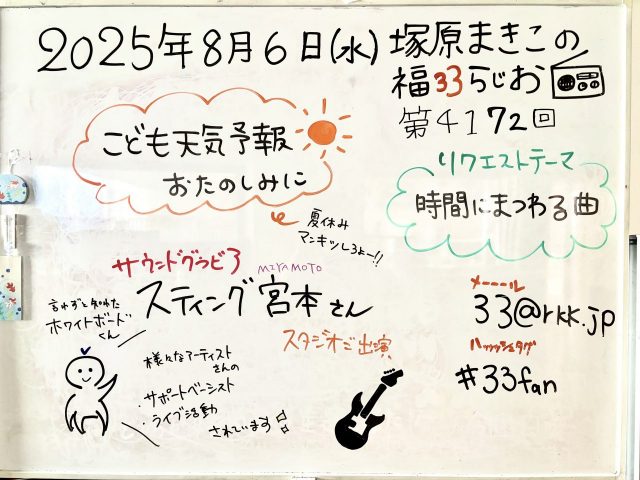 2025年8月6日(水)
塚原まきこの
福33らじお
第4172回
こども天気予報
おたのしみに
夏休み
マンキツしろよー!!
リクエストテーマ
時間にまつわる曲
サウンドグラビ3
MIYAMOTO
スティング宮本さん
スタジオご出演
言わずと知れた
ホワイトボード
くん
様々なアーティスト
さんの
・サポートベーシスト
・ライブ活動
されています♫
メーーール
33@rkk.jp
ハッッシュタグ
#33fan